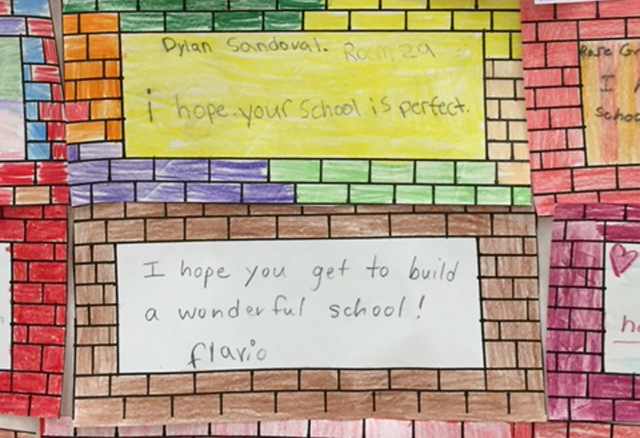 Dylan Sandoval. Room 29
i hope your school is perfect.
I hope you get to build
a wonderful school!
flavio
Rose Gr
I h
Schoo
h